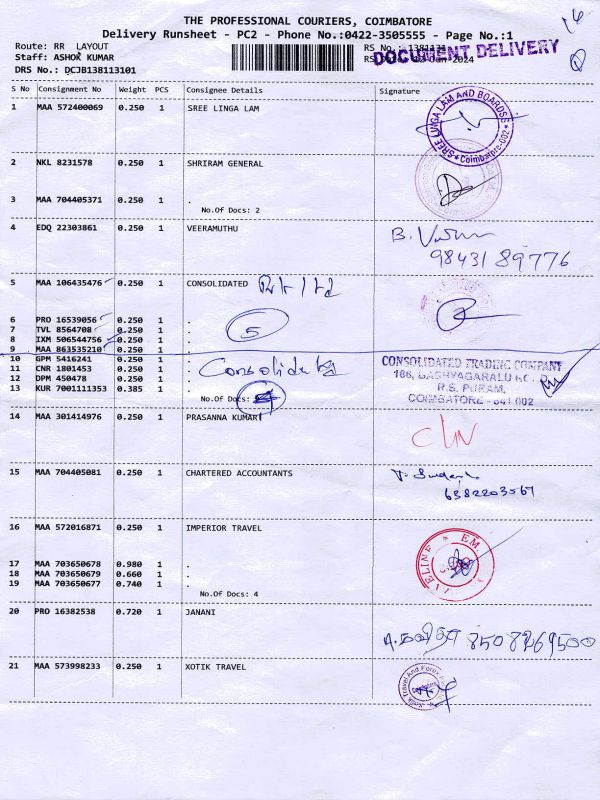 THE PROFESSIONAL COURIERS, COIMBATORE
Delivery Runsheet - PC2 - Phone No.:0422-3505555 - Page No.:1
Route: RR LAYOUT
Staff: ASHOK KUMAR
DRS No.: DCJB138113101
DOCUMENT DELIVERY
S No Consignment No Weight PCS Consignee Details Signature
1 MAA 572400069 0.250 1 SREE LINGA LAM
SREE LINGA LAM AND BOARDS Coimbatore-002
2 NKL 8231578 0.250 1 SHRIRAM GENERAL
3 MAA 704405371 0.250 1 .
No.Of Docs: 2
4 EDQ 22303861 0.250 1 VEERAMUTHU
98431 89776
5 MAA 106435476 0.250 1 CONSOLIDATED
6 PRO 16539056 0.250 1 .
7 TVL 8564708 0.250 1 .
5
8 IXM 506544756 0.250 1 .
9 MAA 863535210 0.250 1 .
10 GPM 5416241 0.250 1 .
11 CNR 1801453 0.250 1 .
12 DPM 450478 0.250 1 .
13 KUR 7001111353 0.385 1 .
No.Of Docs:
CONSOLIDATED TRADING COMPANY
R.S. PURAM,
COIMBATORE - 641 002
14 MAA 301414976 0.250 1 PRASANNA KUMAR
15 MAA 704405081 0.250 1 CHARTERED ACCOUNTANTS
6382203567
16 MAA 572016871 0.250 1 IMPERIOR TRAVEL
17 MAA 703650678 0.980 1 .
18 MAA 703650679 0.660 1 .
19 MAA 703650677 0.740 1 .
No.Of Docs: 4
20 PRO 16382538 0.720 1 JANANI
8508269500
21 MAA 573998233 0.250 1 XOTIK TRAVEL